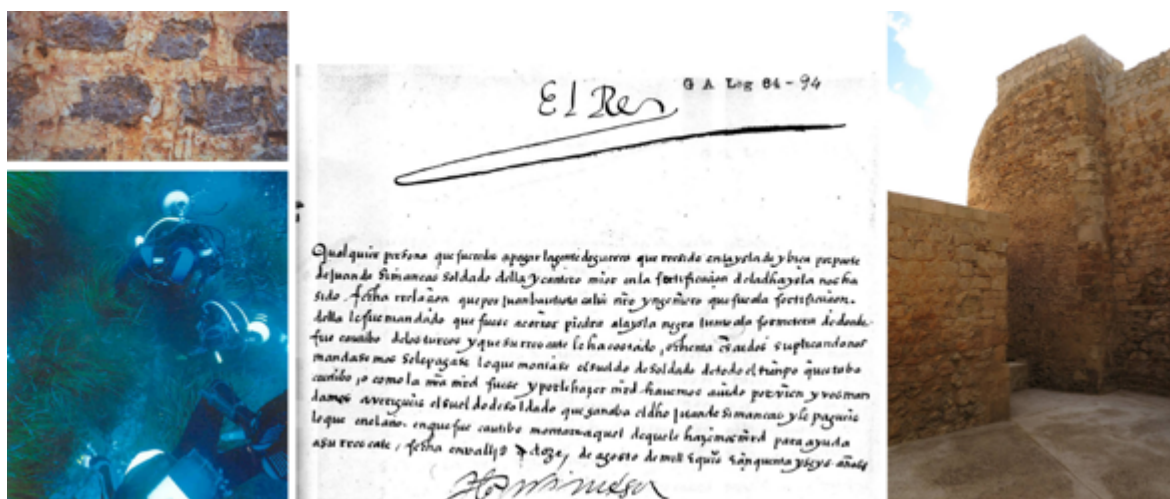 G A Leg 64 - 94
El Rey
Qualquier persona que a pagar la gente de guerra que reside en la ysla de por parte
de Juan de Simancas soldado della y cantero en la fortificacion de la dha ysla nos ha
sido fecha relacion que por Juan bautista calvi nro yngeniero que fue a la fortificacion
della le fue mandado que fuese a cortar piedra a la ysla negra junto a la formetera de donde
fue cautibo de los turcos y que su rrescate le ha costado, ochenta suplicandonos
mandasemos se le pagase lo que montase el sueldo de soldado de todo el tiempo questobo
cautibo, o como la nra mrd fuese y por le hazer mrd havemos avido por vien y vos man
damos averigueis el sueldo de soldado que ganaba el dho Juan de Simancas y le pagueis
lo que en el año en que fue cautibo aquel de que le hazemos mrd para ayuda
a su rrescate, fecha en a doze, de agosto de mill e cinquenta y seys años